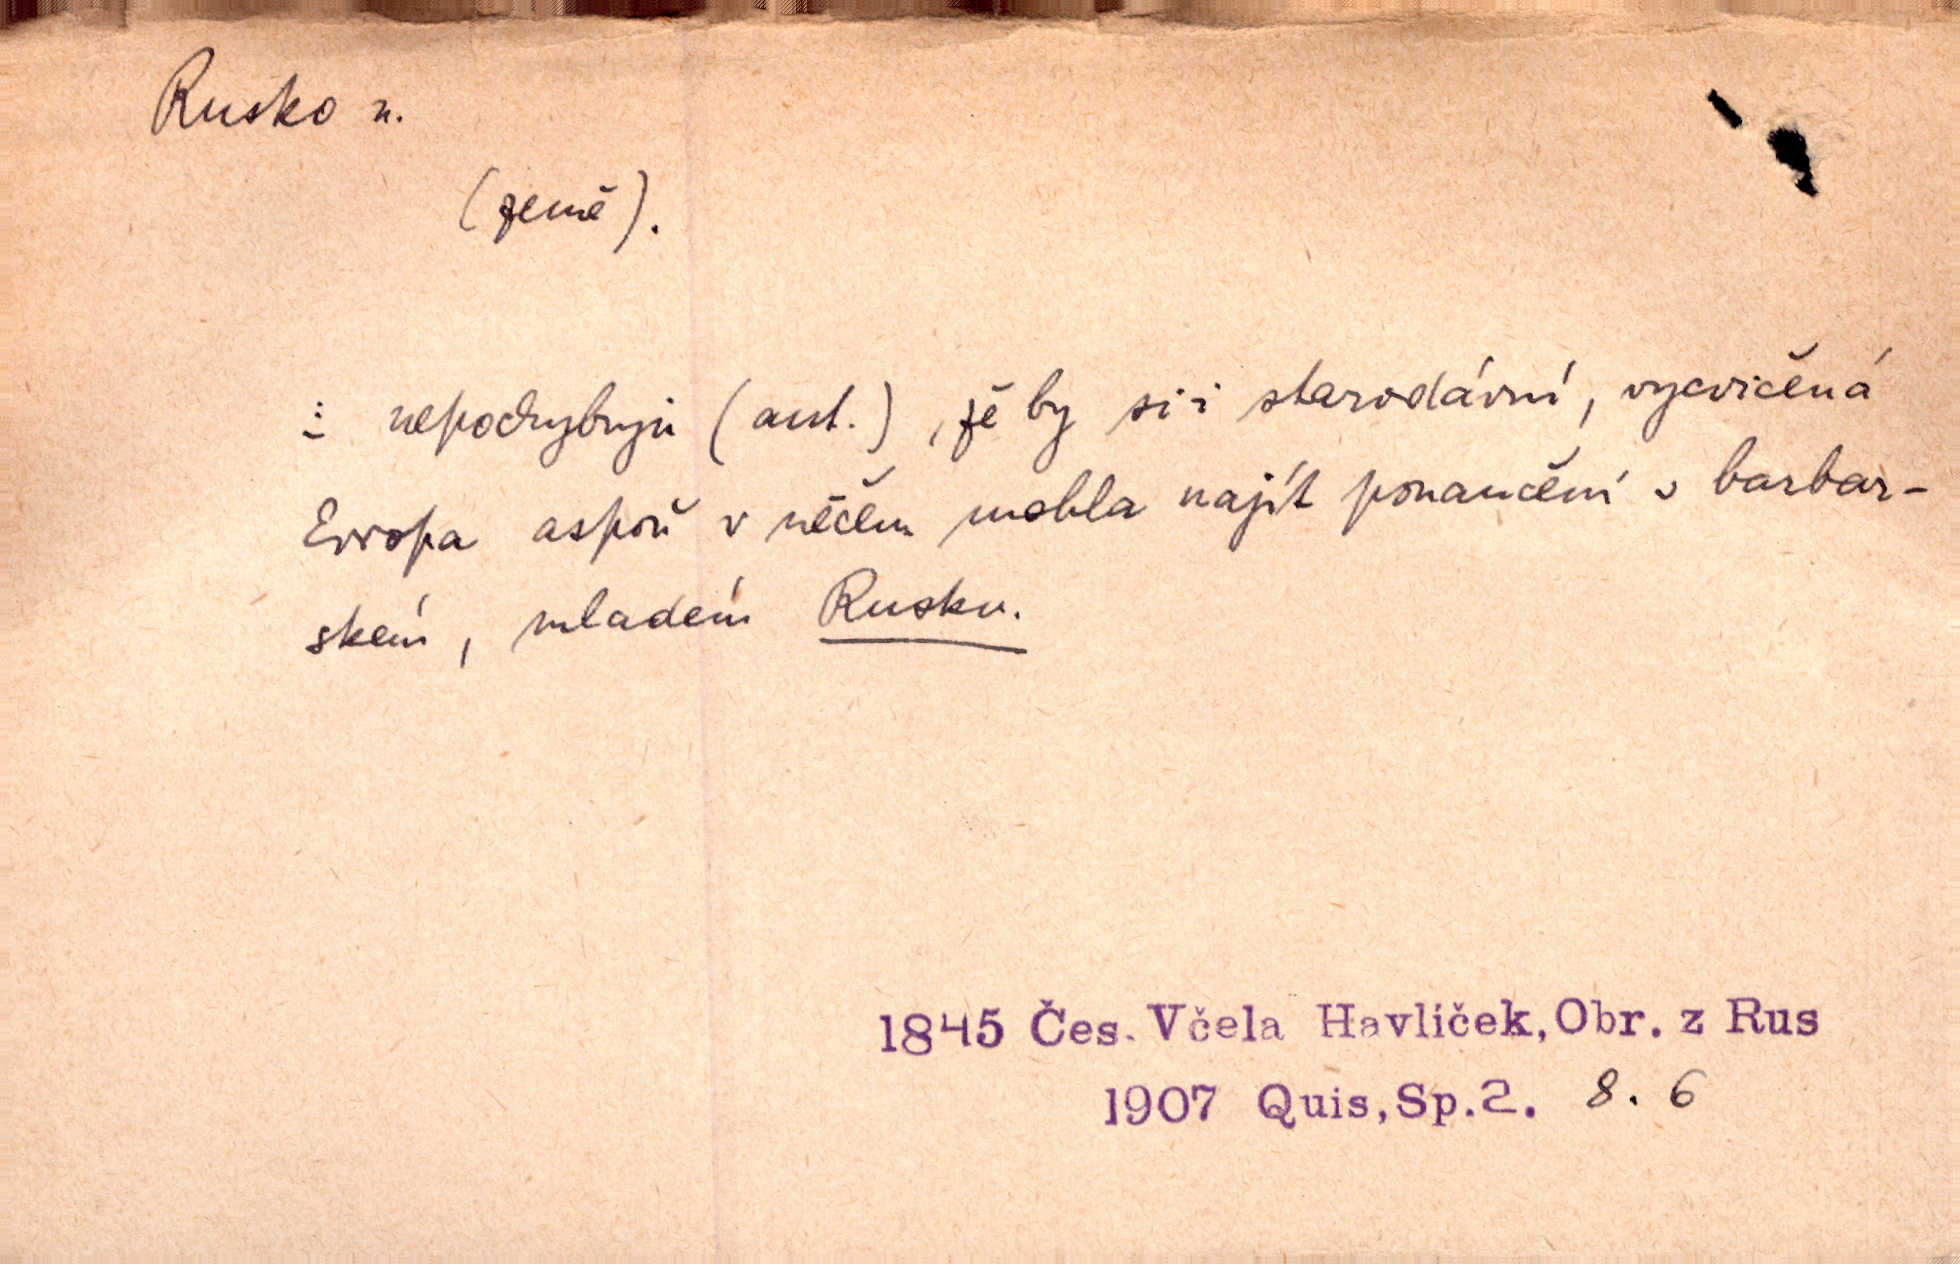 Rusko n.
(země).
: nepochybuji (aut.), že by si i starodávní, vycvičená
Evropa aspoň v něčem mohla najít ponaučení v barbar-
ském, mladém Rusku.
1845 Čes. Včela Havlíček, Obr. z Rus
1907 Quis, Sp.2. 8. 6